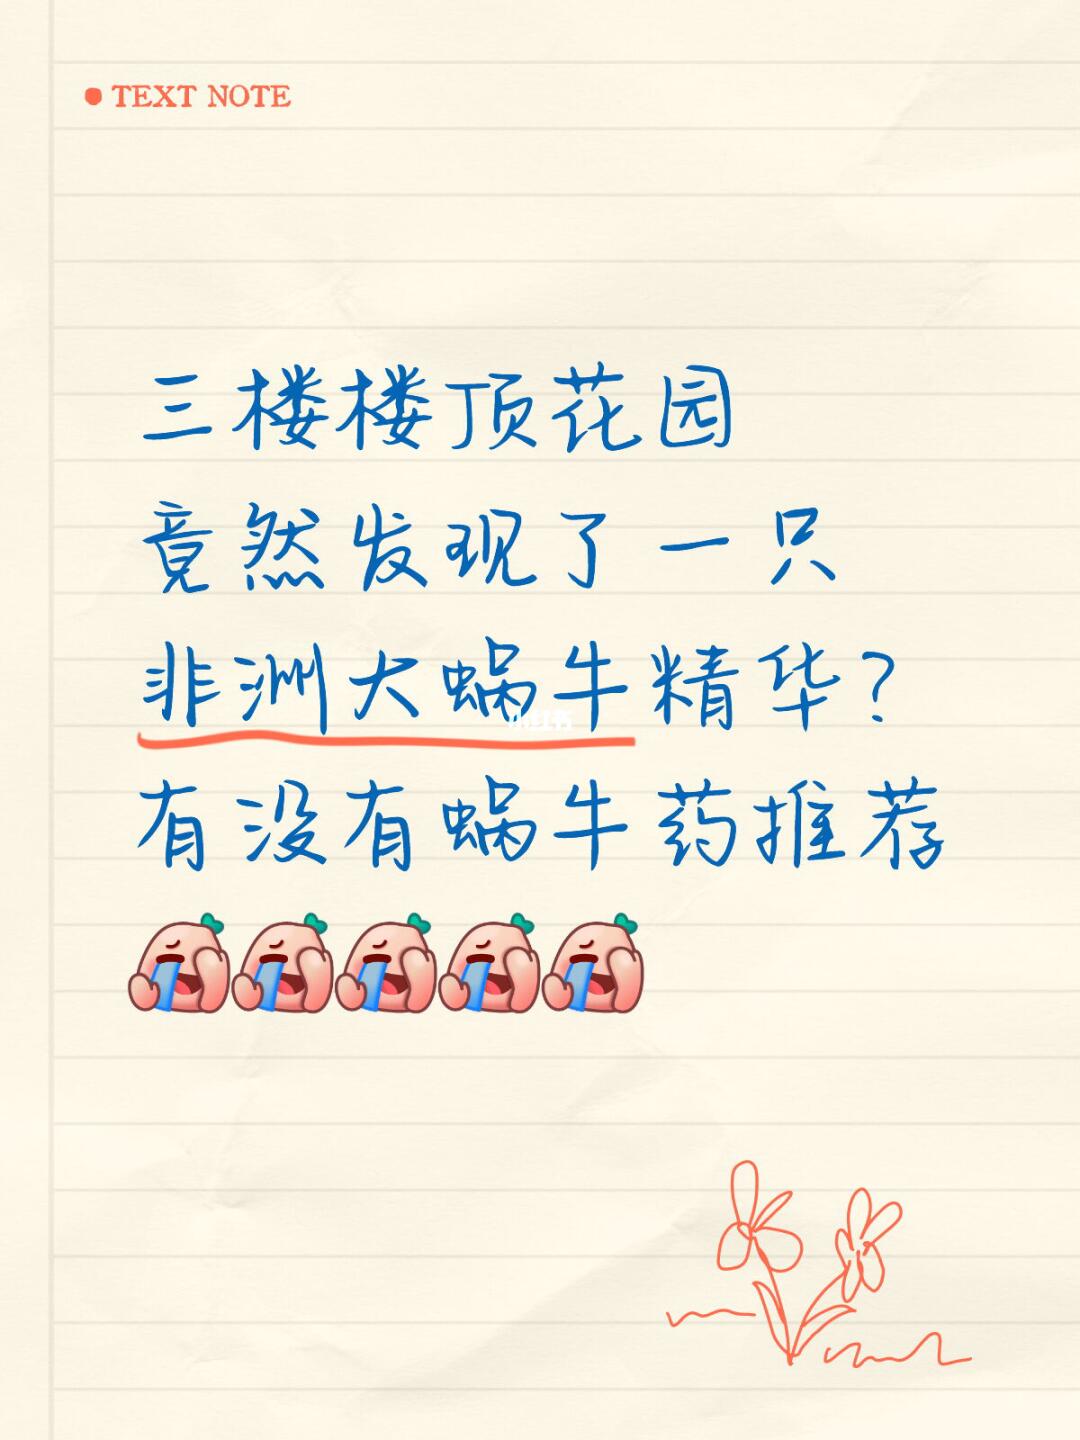 TEXT NOTE
三楼楼顶花园
竟然发现了一只
非洲大蜗牛精华？
小红书
有没有蜗牛药推荐